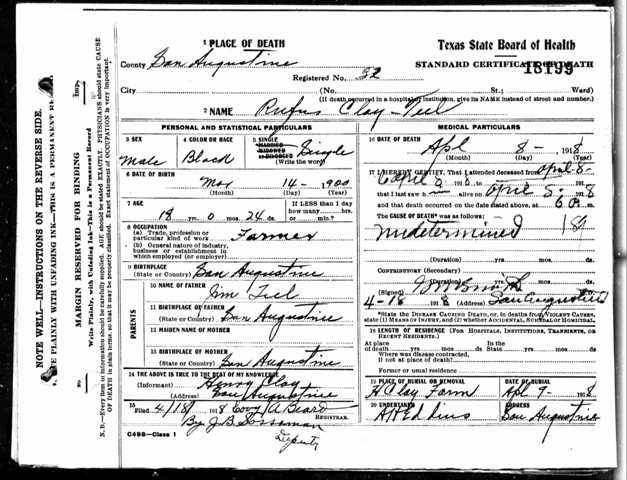 1 PLACE OF DEATH
County San Augustine
Texas State Board of Health
STANDARD CERTIFICATE OF DEATH
Registered No. 32
18199
City (No. St.; Ward)
(If death occurred in a hospital or institution, give its NAME instead of street and number.)
2 NAME Rufus Clay Teel
PERSONAL AND STATISTICAL PARTICULARS
3 SEX
Male
4 COLOR OR RACE
Black
5 SINGLE
MARRIED
WIDOWED
OR DIVORCED
(Write the word)
Single
6 DATE OF BIRTH
Mar 14 - 1900
(Month) (Day) (Year)
7 AGE
18 yrs. 0 mos. 24 ds.
If LESS than 1 day
how many hrs.
or min.?
8 OCCUPATION
(a) Trade, profession or
particular kind of work Farmer
(b) General nature of industry,
business or establishment in
which employed (or employer)
9 BIRTHPLACE
(State or Country) San Augustine
PARENTS
10 NAME OF FATHER
Jim Teel
11 BIRTHPLACE OF FATHER
(State or Country) San Augustine
12 MAIDEN NAME OF MOTHER
13 BIRTHPLACE OF MOTHER
(State or Country) San Augustine
14 THE ABOVE IS TRUE TO THE BEST OF MY KNOWLEDGE
(Informant) Henry Clay
(Address) San Augustine
15
Filed 4/18 1918 A Beard
REGISTRAR.
By J B
Deputy
C498—Class 1
MEDICAL PARTICULARS
16 DATE OF DEATH
Apl 8- 1918
(Month) (Day) (Year)
17 I HEREBY CERTIFY, That I attended deceased from April 8-
1918, to April 8, 1918
that I last saw h alive on 191
and that death occurred on the date stated above, at 6 P. m.
The CAUSE OF DEATH* was as follows:
Undetermined
(Duration) yrs mos ds
CONTRIBUTORY (Secondary)
(Duration) yrs mos ds
(Signed)
4-18 1918 (Address) San Augustine
*State the DISEASE CAUSING DEATH, or, in deaths from VIOLENT CAUSES,
state (1) MEANS OF INJURY, and (2) whether ACCIDENTAL, SUICIDAL or HOMICIDAL.
18 LENGTH OF RESIDENCE (FOR HOSPITALS, INSTITUTIONS, TRANSIENTS, OR
RECENT RESIDENTS.)
At place
of death yrs mos ds. In the
State yrs mos ds
Where was disease contracted,
if not at place of death?
Former or usual residence
19 PLACE OF BURIAL OR REMOVAL
H Clay Farm
DATE OF BURIAL
Apl 9- 1918
20 UNDERTAKER
ADDRESS
San Augustine
NOTE WELL—INSTRUCTIONS ON THE REVERSE SIDE.
PLAINLY WITH UNFADING INK—THIS IS A PERMANENT
MARGIN RESERVED FOR BINDING
Write Plainly, with Unfading Ink—This is a Permanent Record
N. B.—Every item of information should be carefully supplied. AGE should be stated EXACTLY. PHYSICIANS should state CAUSE
OF DEATH in plain terms, so that it may be properly classified. Exact statement of OCCUPATION is very important.